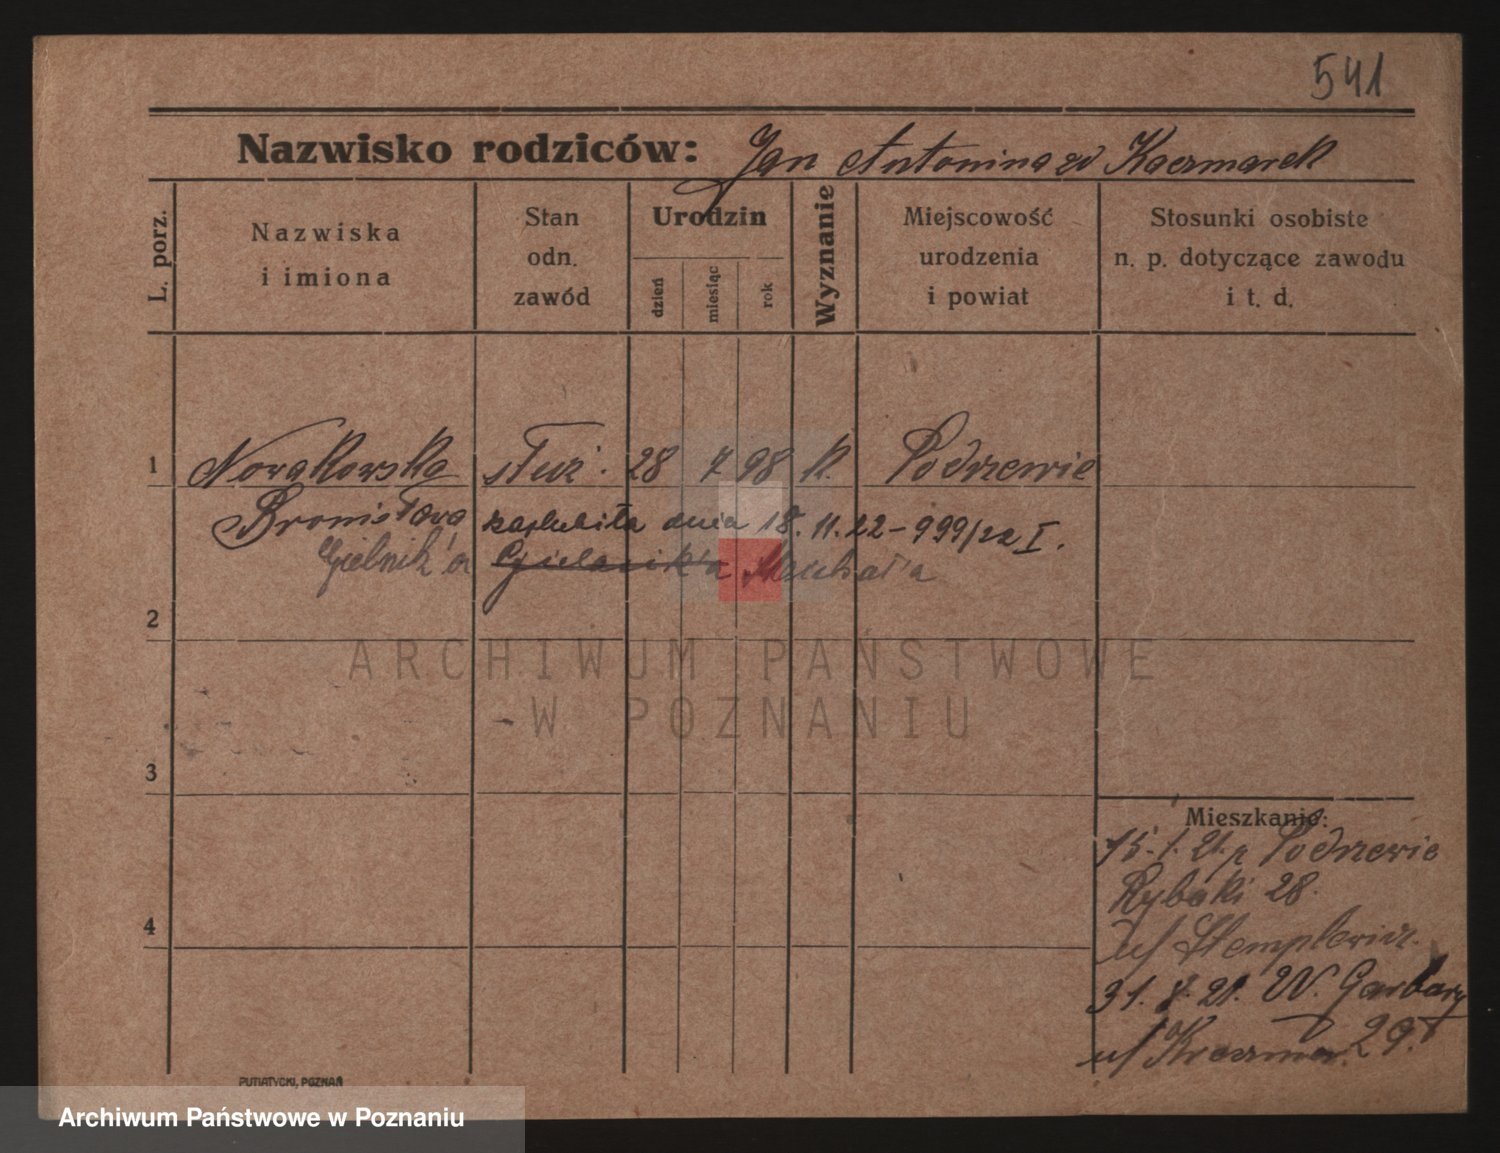 541
Nazwisko rodziców: Jan Antonina zd Kaczmarek
L. porz.
Nazwiska
i imiona
Stan
odn.
zawód
Urodzin
dzień
miesiąc
rok
Wyznanie
Miejscowość
urodzenia
i powiat
Stosunki osobiste
n. p. dotyczące zawodu
i t. d.
1 Nowakowska służ. 28 7 98 k. Podrzewie
Bronisława zaślubiła dnia 18. 11. 22 – 999/22 I.
Gielnik'a Gielanik'a Michał'a
2
ARCHIWUM PAŃSTWOWE
W POZNANIU
3
Mieszkanie:
15. 1. 21. z Podrzewie
Rybaki 28.
4
u/ Stemplewicz.
31. 7. 21. W. Garbary
u/ Kaczmar. 29.
PUTIATYCKI, POZNAŃ
Archiwum Państwowe w Poznaniu